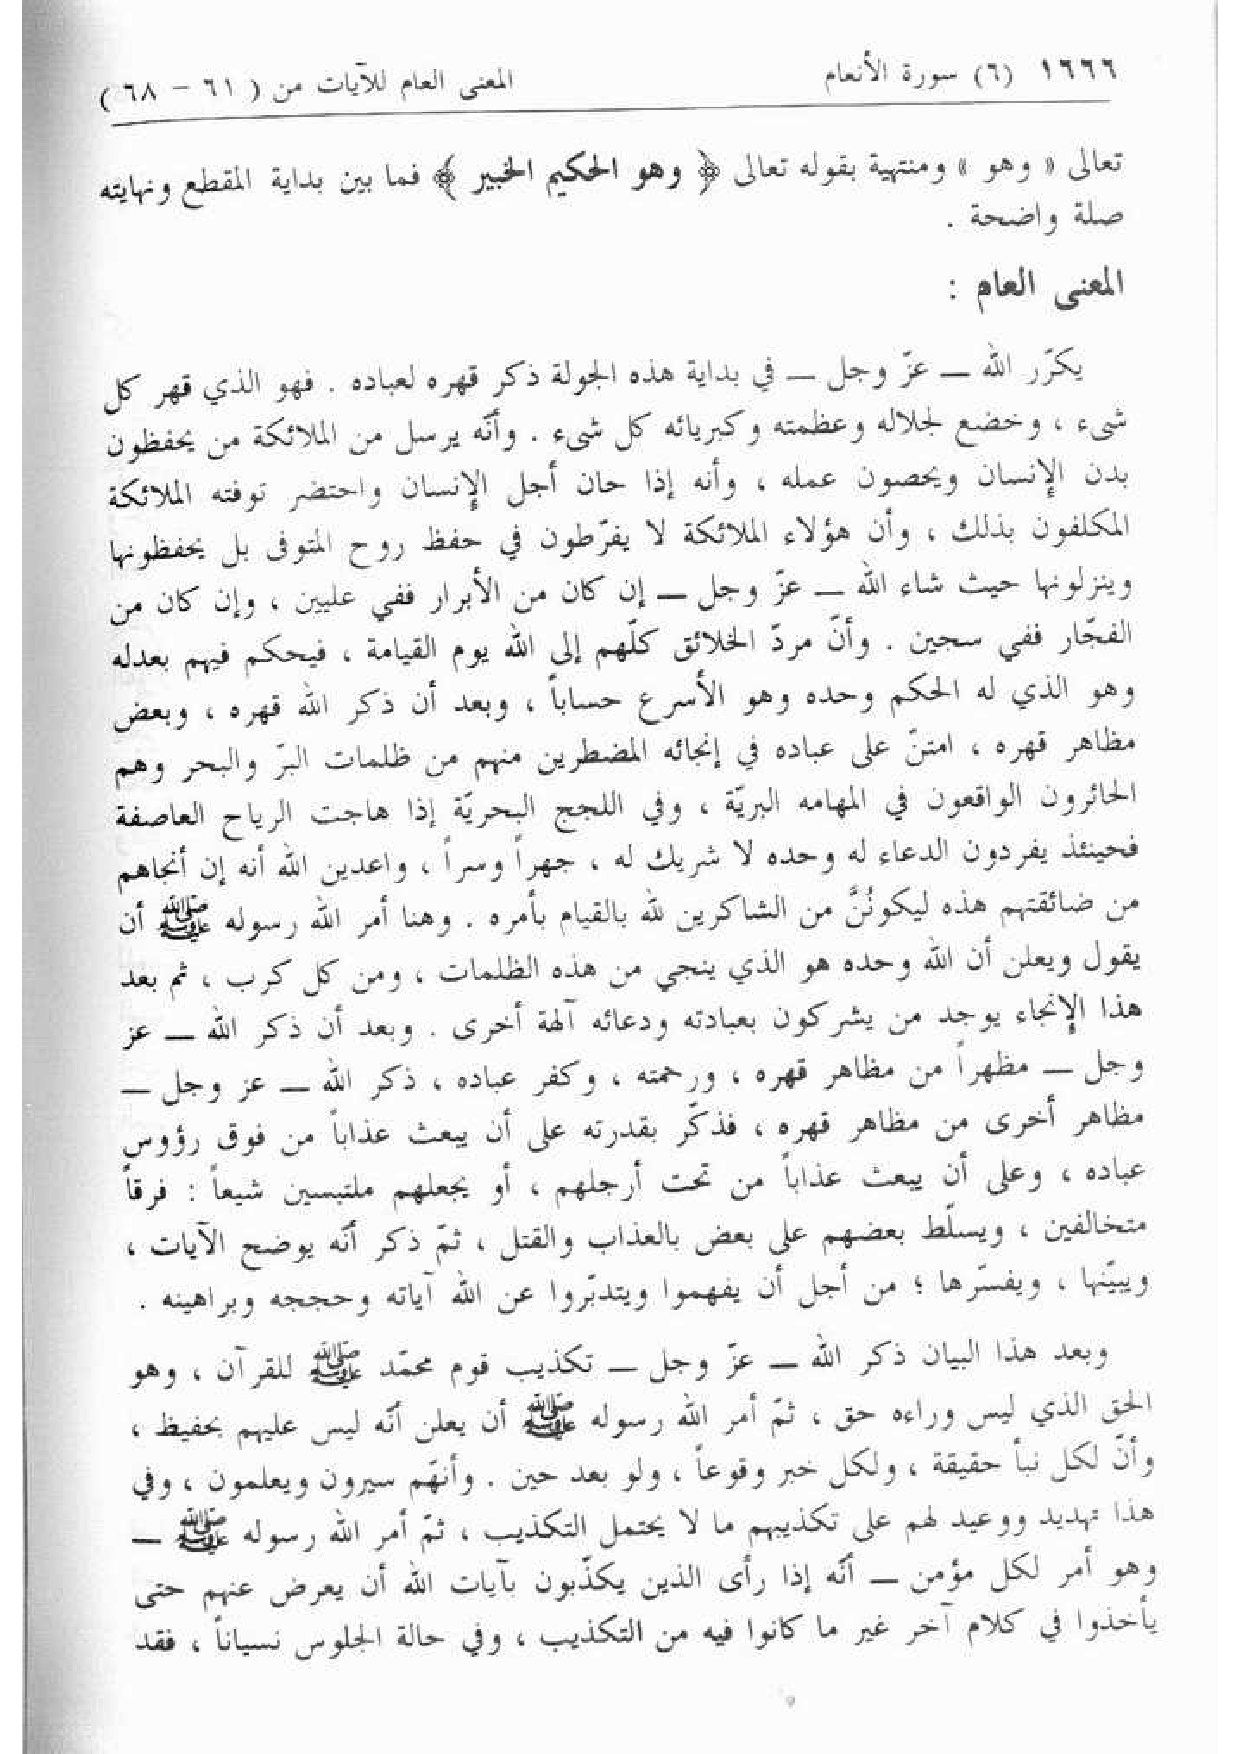 ١٦٦٦ (٦) سورة الأنعام المعنى العام للآيات من ( ٦١ – ٦٨ )
تعالى « وهو » ومنتهية بقوله تعالى ﴿ وهو الحكيم الخبير ﴾ فما بين بداية المقطع ونهايته
صلة واضحة .
المعنى العام :
يكرّر الله — عزّ وجل — في بداية هذه الجولة ذكر قهره لعباده . فهو الذي قهر كل
شىء ، وخضع لجلاله وعظمته وكبريائه كل شىء . وأنّه يرسل من الملائكة من يحفظون
بدن الإنسان ويحصون عمله ، وأنه إذا حان أجل الإنسان واحتضر توفته الملائكة
المكلفون بذلك ، وأن هؤلاء الملائكة لا يفرّطون في حفظ روح المتوفى بل يحفظونها
وينزلونها حيث شاء الله — عزّ وجل — إن كان من الأبرار ففي عليين ، وإن كان من
الفجّار ففي سجين . وأنّ مردّ الخلائق كلّهم إلى الله يوم القيامة ، فيحكم فيهم بعدله
وهو الذي له الحكم وحده وهو الأسرع حساباً ، وبعد أن ذكر الله قهره ، وبعض
مظاهر قهره ، امتنّ على عباده في إنجائه المضطرين منهم من ظلمات البرّ والبحر وهم
الحائرون الواقعون في المهامه البريّة ، وفي اللجج البحريّة إذا هاجت الرياح العاصفة
فحينئذ يفردون الدعاء له وحده لا شريك له ، جهراً وسراً ، واعدين الله أنه إن أنجاهم
من ضائقتهم هذه ليكونُنَّ من الشاكرين لله بالقيام بأمره . وهنا أمر الله رسوله ﷺ أن
يقول ويعلن أن الله وحده هو الذي ينجي من هذه الظلمات ، ومن كل كرب ، ثم بعد
هذا الإنجاء يوجد من يشركون بعبادته ودعائه آلهة أخرى . وبعد أن ذكر الله — عز
وجل — مظهراً من مظاهر قهره ، ورحمته ، وكفر عباده ، ذكر الله — عز وجل —
مظاهر أخرى من مظاهر قهره ، فذكّر بقدرته على أن يبعث عذاباً من فوق رؤوس
عباده ، وعلى أن يبعث عذاباً من تحت أرجلهم ، أو يجعلهم ملتبسين شيعاً : فرقاً
متخالفين ، ويسلّط بعضهم على بعض بالعذاب والقتل ، ثمّ ذكر أنّه يوضح الآيات ،
ويبيّنها ، ويفسّرها ؛ من أجل أن يفهموا ويتدبّروا عن الله آياته وحججه وبراهينه .
وبعد هذا البيان ذكر الله — عزّ وجل — تكذيب قوم محمّد ﷺ للقرآن ، وهو
الحق الذي ليس وراءه حق ، ثمّ أمر الله رسوله ﷺ أن يعلن أنّه ليس عليهم بحفيظ ،
وأنّ لكل نبأ حقيقة ، ولكل خبر وقوعاً ، ولو بعد حين . وأنهّم سيرون ويعلمون ، وفي
هذا تهديد ووعيد لهم على تكذيبهم ما لا يحتمل التكذيب ، ثمّ أمر الله رسوله ﷺ —
وهو أمر لكل مؤمن — أنّه إذا رأى الذين يكذّبون بآيات الله أن يعرض عنهم حتى
يأخذوا في كلام آخر غير ما كانوا فيه من التكذيب ، وفي حالة الجلوس نسياناً ، فقد